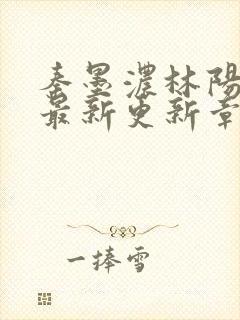 秦墨濃林陽
最新更新章
一捧雪